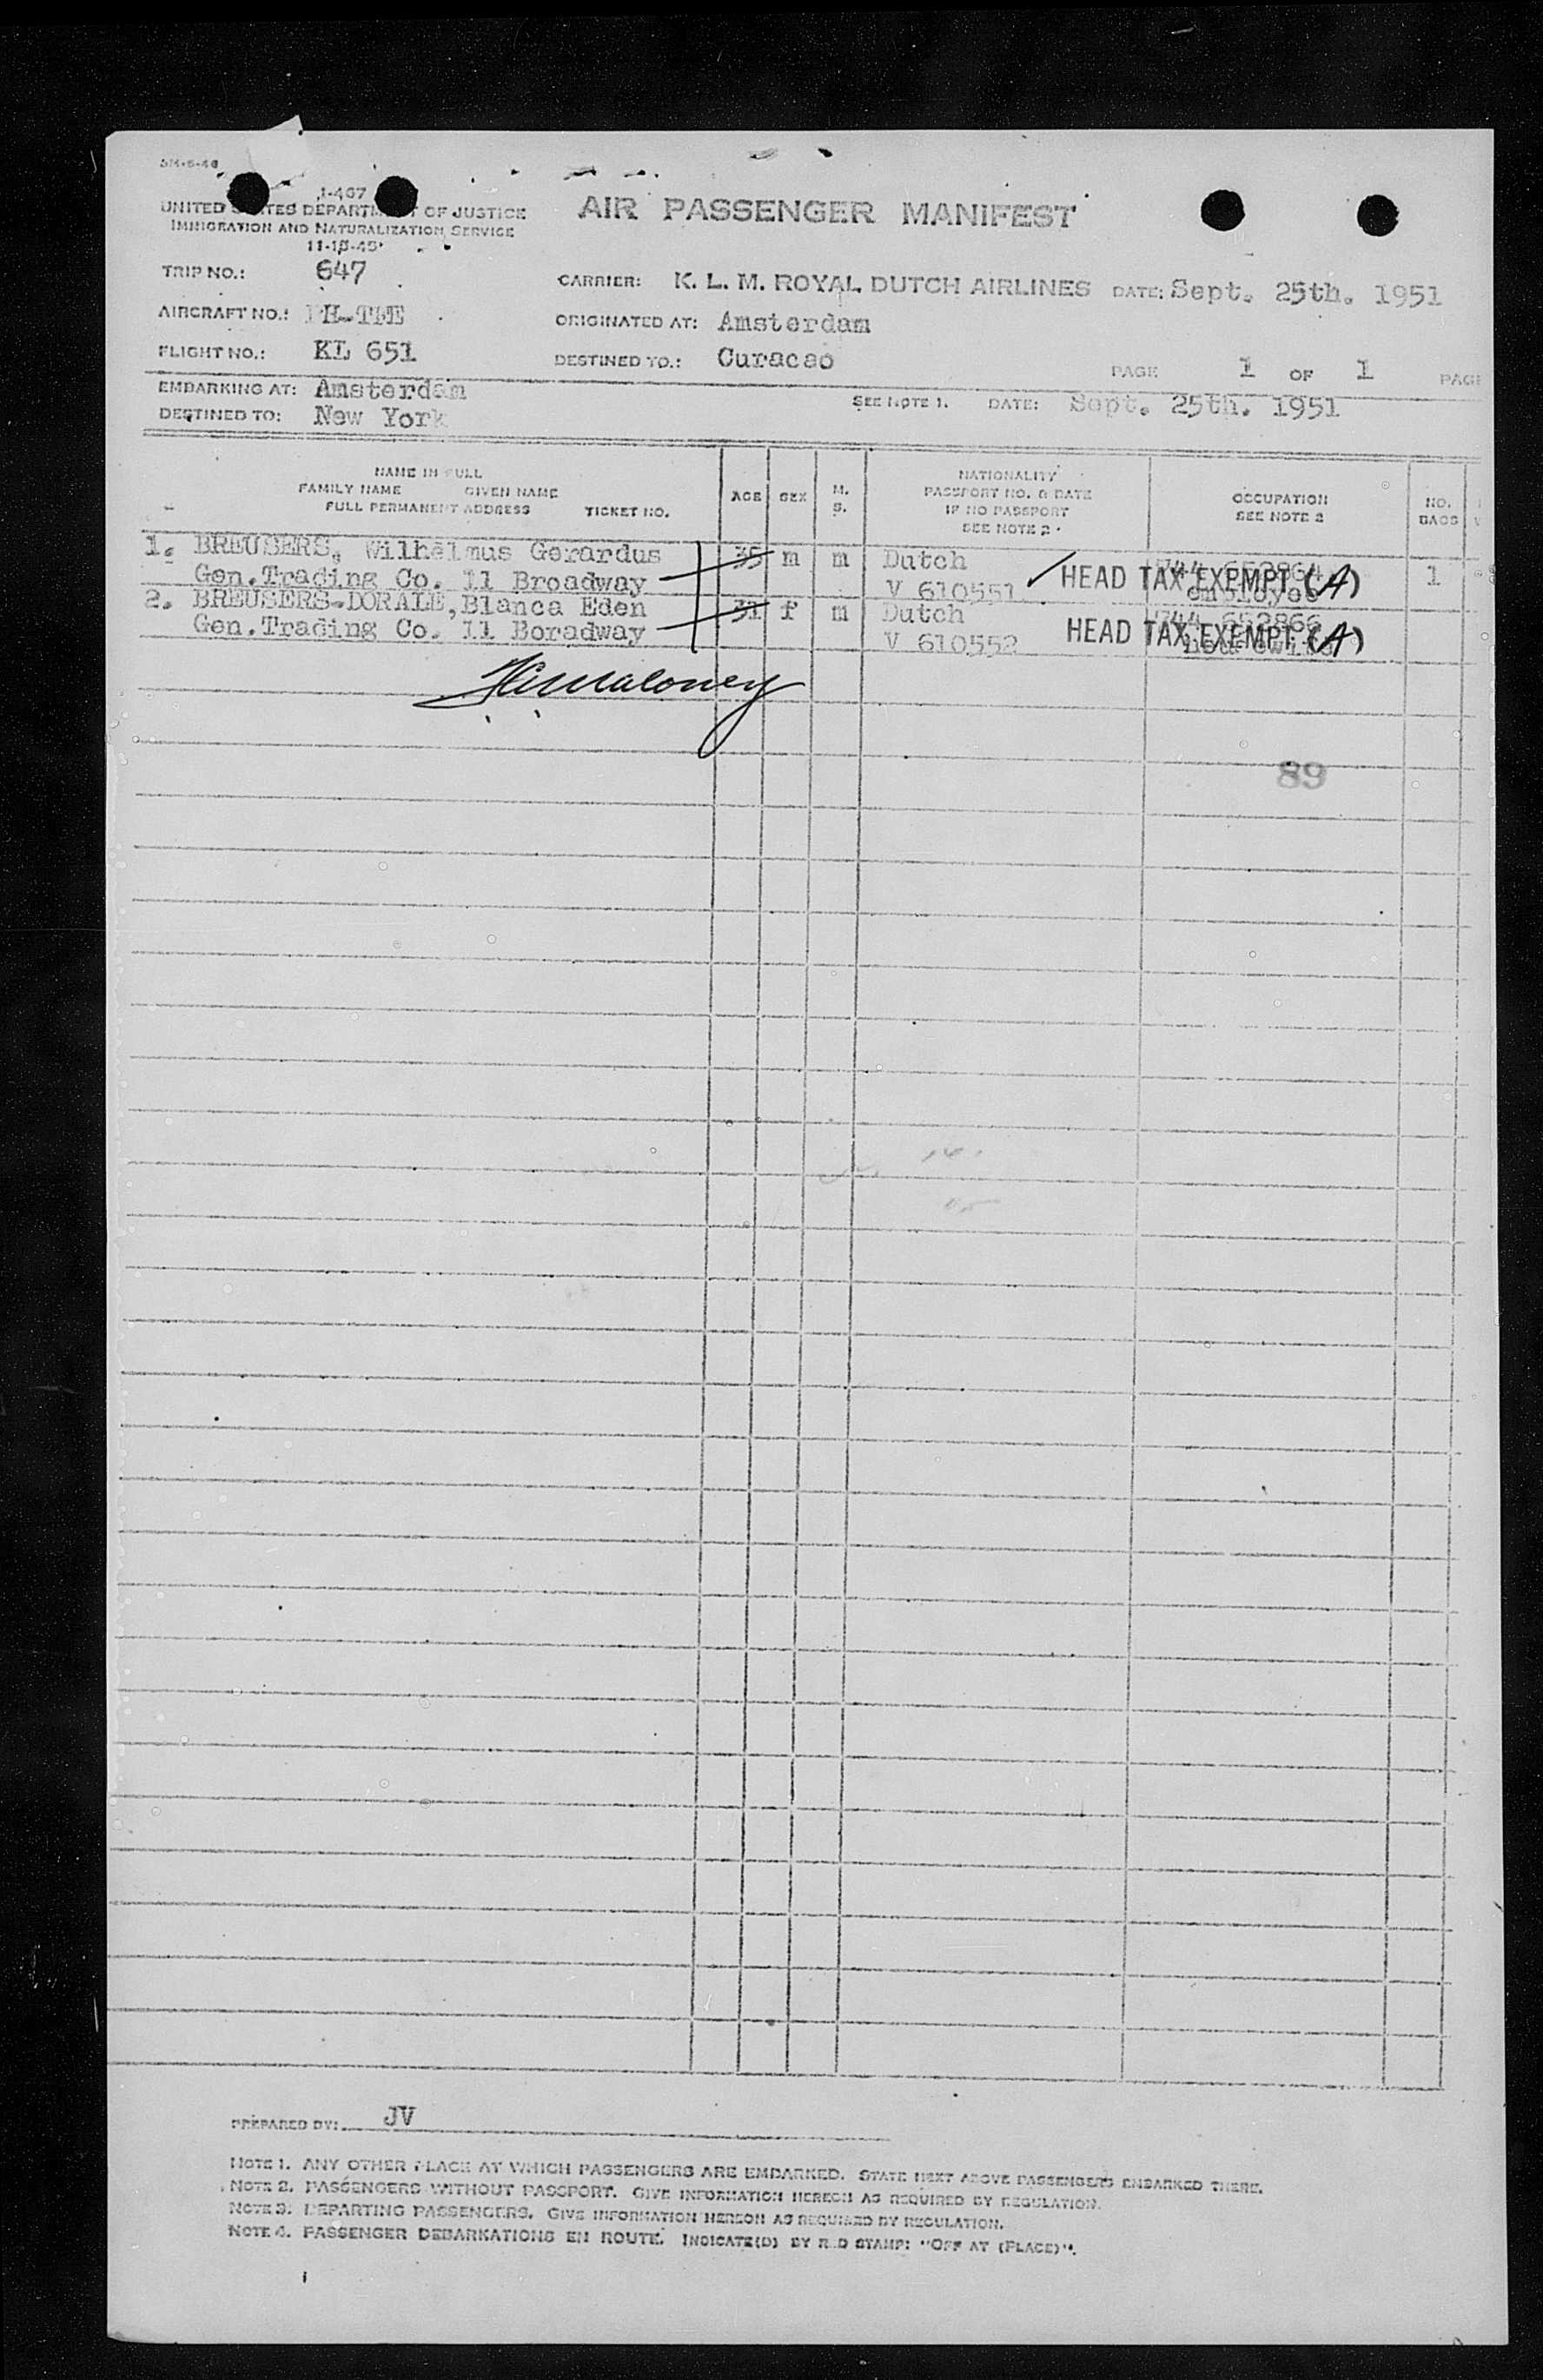 5M-6-46
I-467
UNITED STATES DEPARTMENT OF JUSTICE
IMMIGRATION AND NATURALIZATION SERVICE
AIR PASSENGER MANIFEST
TRIP NO.: 647
CARRIER: K. L. M. ROYAL DUTCH AIRLINES DATE: Sept. 25th. 1951
AIRCRAFT NO.: PH-TDE
ORIGINATED AT: Amsterdam
FLIGHT NO.: KL 651
DESTINED TO.: Curacao
PAGE 1 OF 1 PAGE
EMBARKING AT: Amsterdam
DESTINED TO: New York
SEE NOTE 1. DATE: Sept. 25th. 1951
NAME IN FULL
FAMILY NAME GIVEN NAME
FULL PERMANENT ADDRESS TICKET NO.
AGE SEX M. S.
NATIONALITY
PASSPORT NO. & DATE
IF NO PASSPORT
SEE NOTE 2
OCCUPATION
SEE NOTE 2
NO.
BAGS
1. BREUSERS, Wilhelmus Gerardus 35 m m Dutch 744 652864 1
Gen.Trading Co. 11 Broadway V 610551 HEAD TAX EXEMPT (A) employee
2. BREUSERS-DORALE, Blanca Eden 31 f m Dutch 744 652866
Gen.Trading Co. 11 Boradway V 610552 HEAD TAX EXEMPT (A)
Maloney
89
PREPARED BY: JV
NOTE 1. ANY OTHER PLACE AT WHICH PASSENGERS ARE EMBARKED. STATE NEXT ABOVE PASSENGERS EMBARKED THERE.
NOTE 2. PASSENGERS WITHOUT PASSPORT. GIVE INFORMATION HEREON AS REQUIRED BY REGULATION.
NOTE 3. DEPARTING PASSENGERS. GIVE INFORMATION HEREON AS REQUIRED BY REGULATION.
NOTE 4. PASSENGER DEBARKATIONS EN ROUTE. INDICATE(D) BY RED STAMP: "OFF AT (PLACE)".